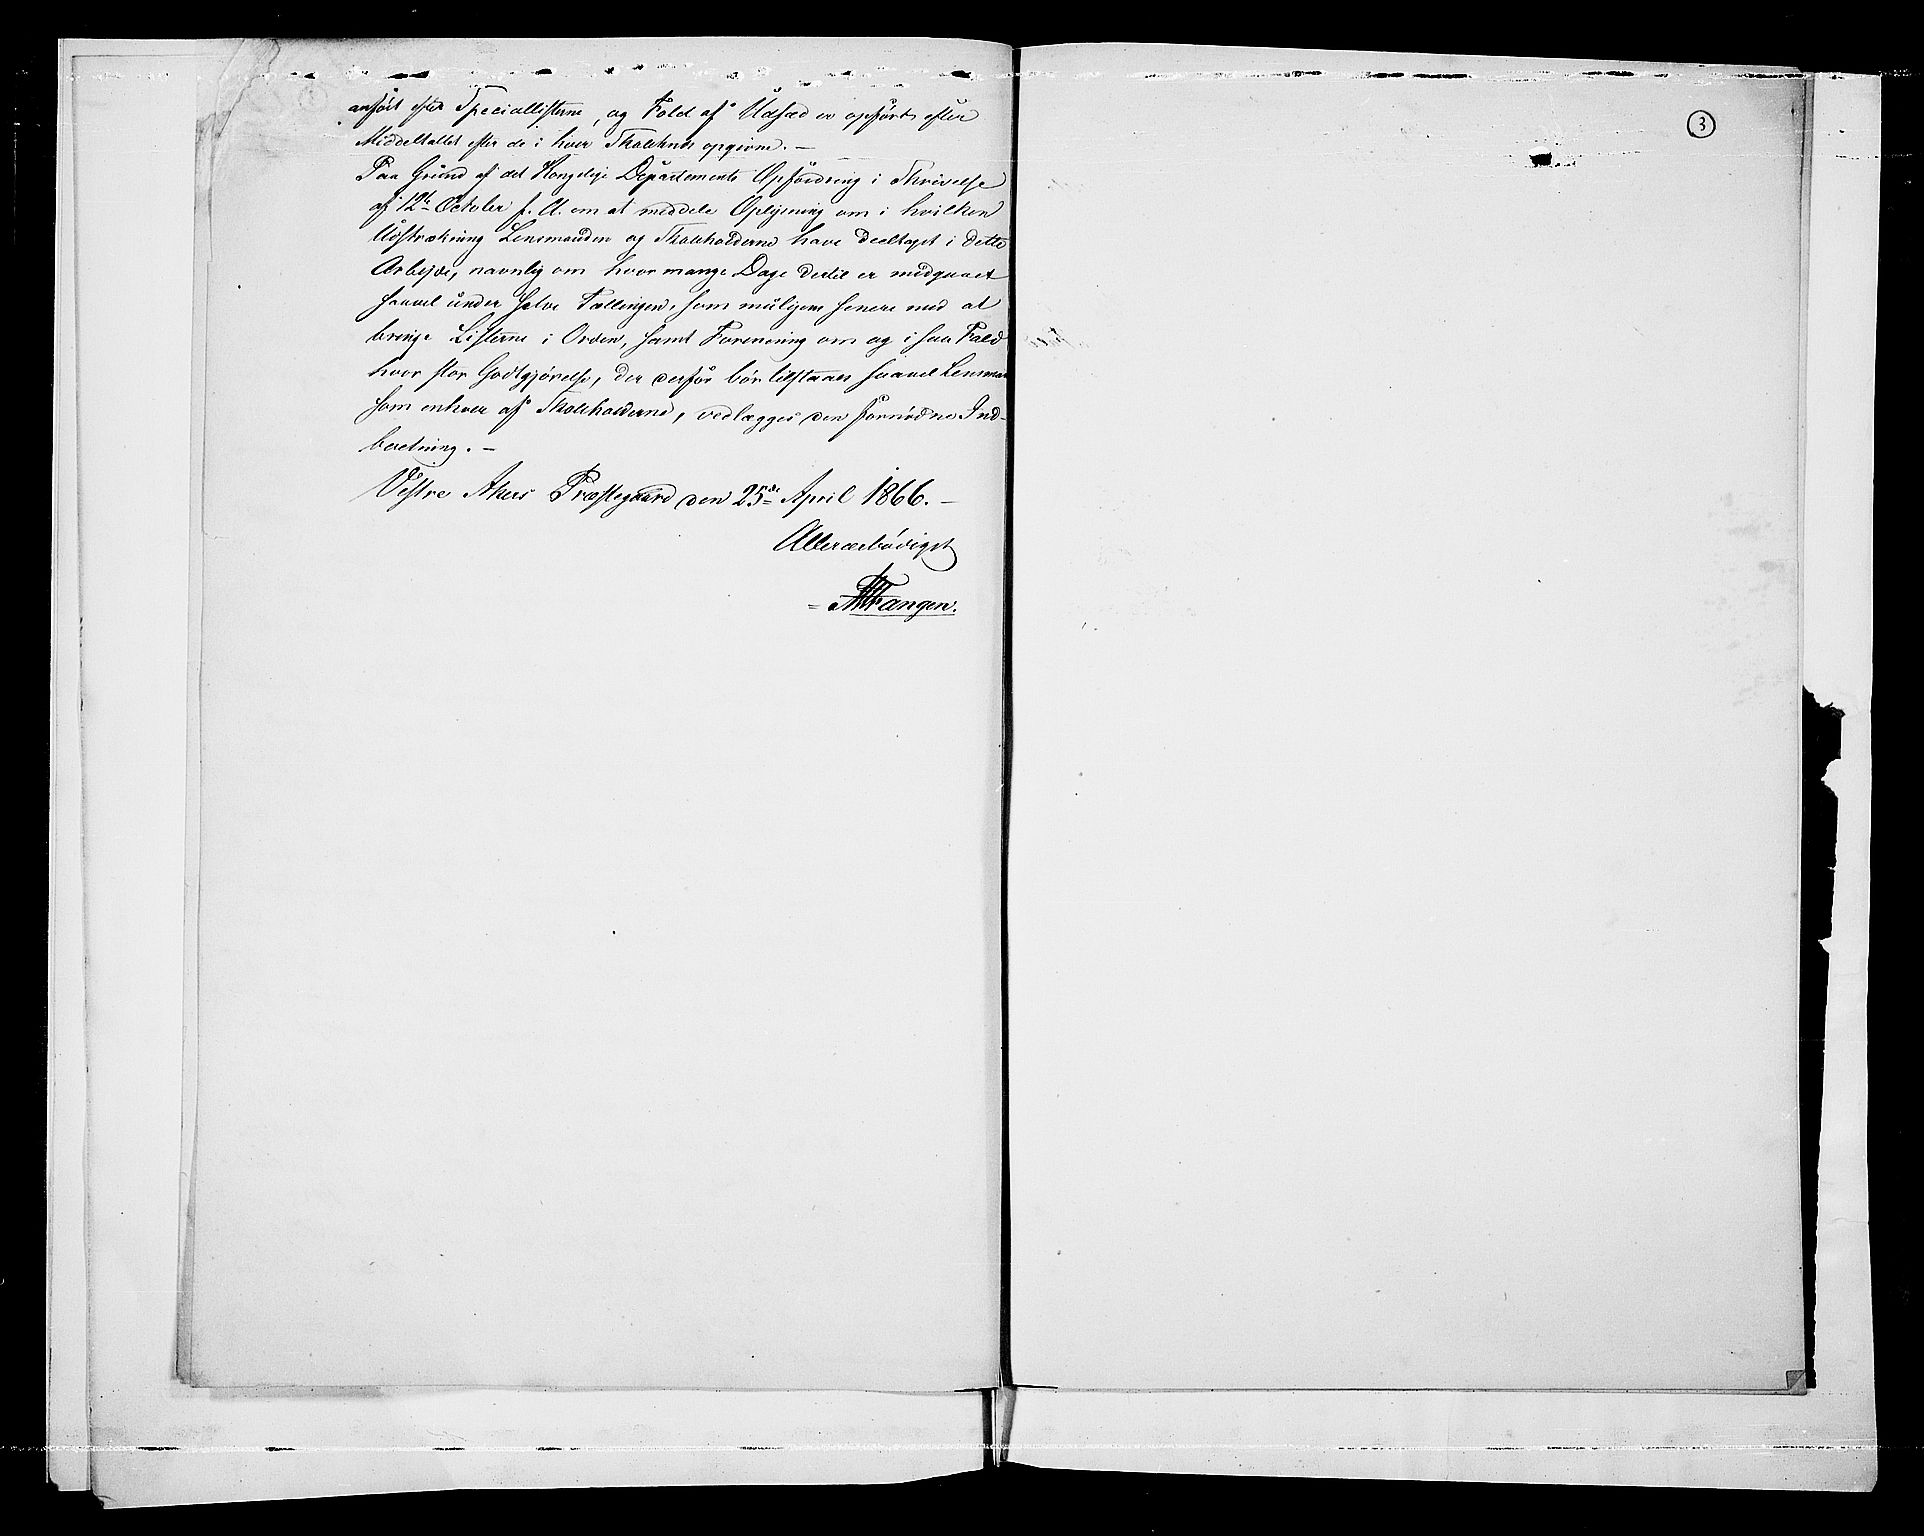 anført efter Speciallisterne, og Fold af Udsæd er opført efter
Middeltallet efter de i hver Skolekreds opgivne. —
Paa Grund af det Kongelige Departements Opfordring i Skrivelse
af 12te October f. A. om at meddele Oplysning om i hvilken
Udstrækning Lensmanden og Skoleholderne have deeltaget i dette
Arbejde, navnlig om hvor mange Dage dertil er medgaaet
saavel under selve Tællingen, som muligens senere med at
bringe Listerne i Orden, samt Formening om og i saa Fald
hvor stor Godtgjörelse, der derfor bør tilstaaes saavel Lensman
som enhver af Skoleholderne, vedlægges den fornødne Ind-
beretning. —
Vestre Akers Præstegaard den 25de April 1866. —
Allerærbödigst
Fangen.
3